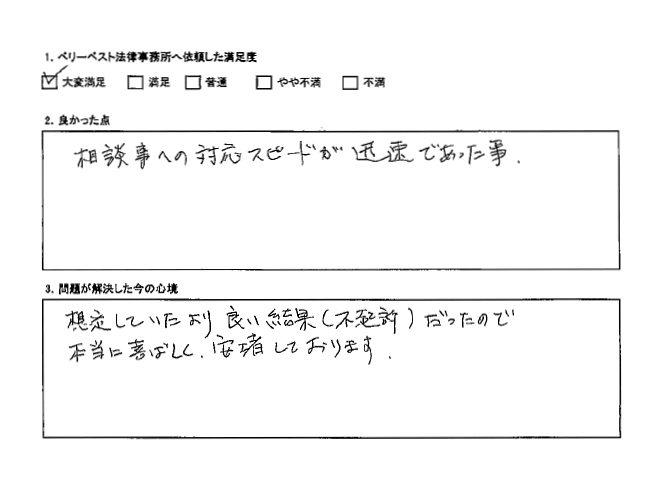 1. ベリーベスト法律事務所へ依頼した満足度
☑ 大変満足 □ 満足 □ 普通 □ やや不満 □ 不満
2. 良かった点
相談事への対応スピードが迅速であった事.
3. 問題が解決した今の心境
想定していたより良い結果(不起訴)だったので
本当に喜ばしく、安堵しております.